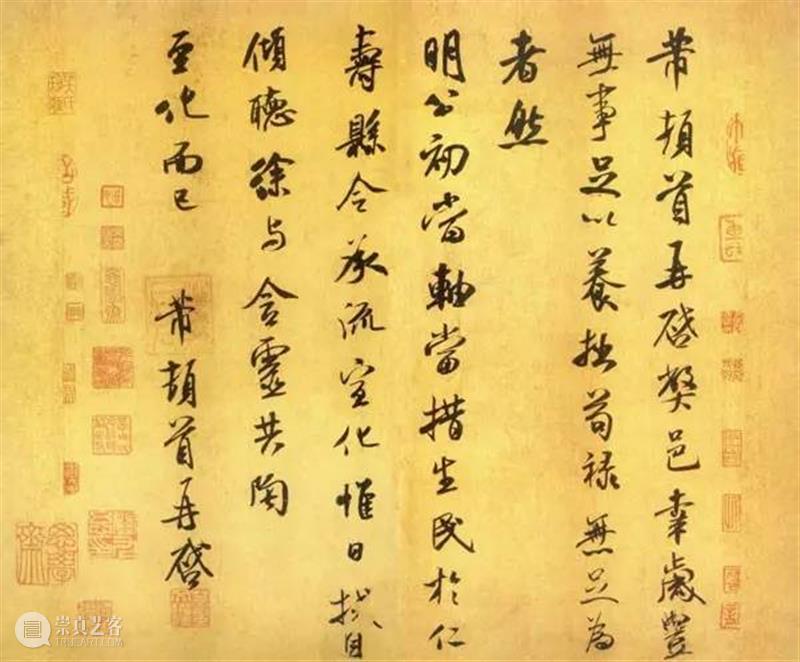 芾頓首再啓弊邑幸歲豐
無事足以養拙苟祿無足為
者然
明公初當軸當措生民於仁
壽縣令承流宣化惟日拭目
傾聽徐与含靈共陶
至化而已 芾頓首再啓
崇真艺客
TRUEART.COM